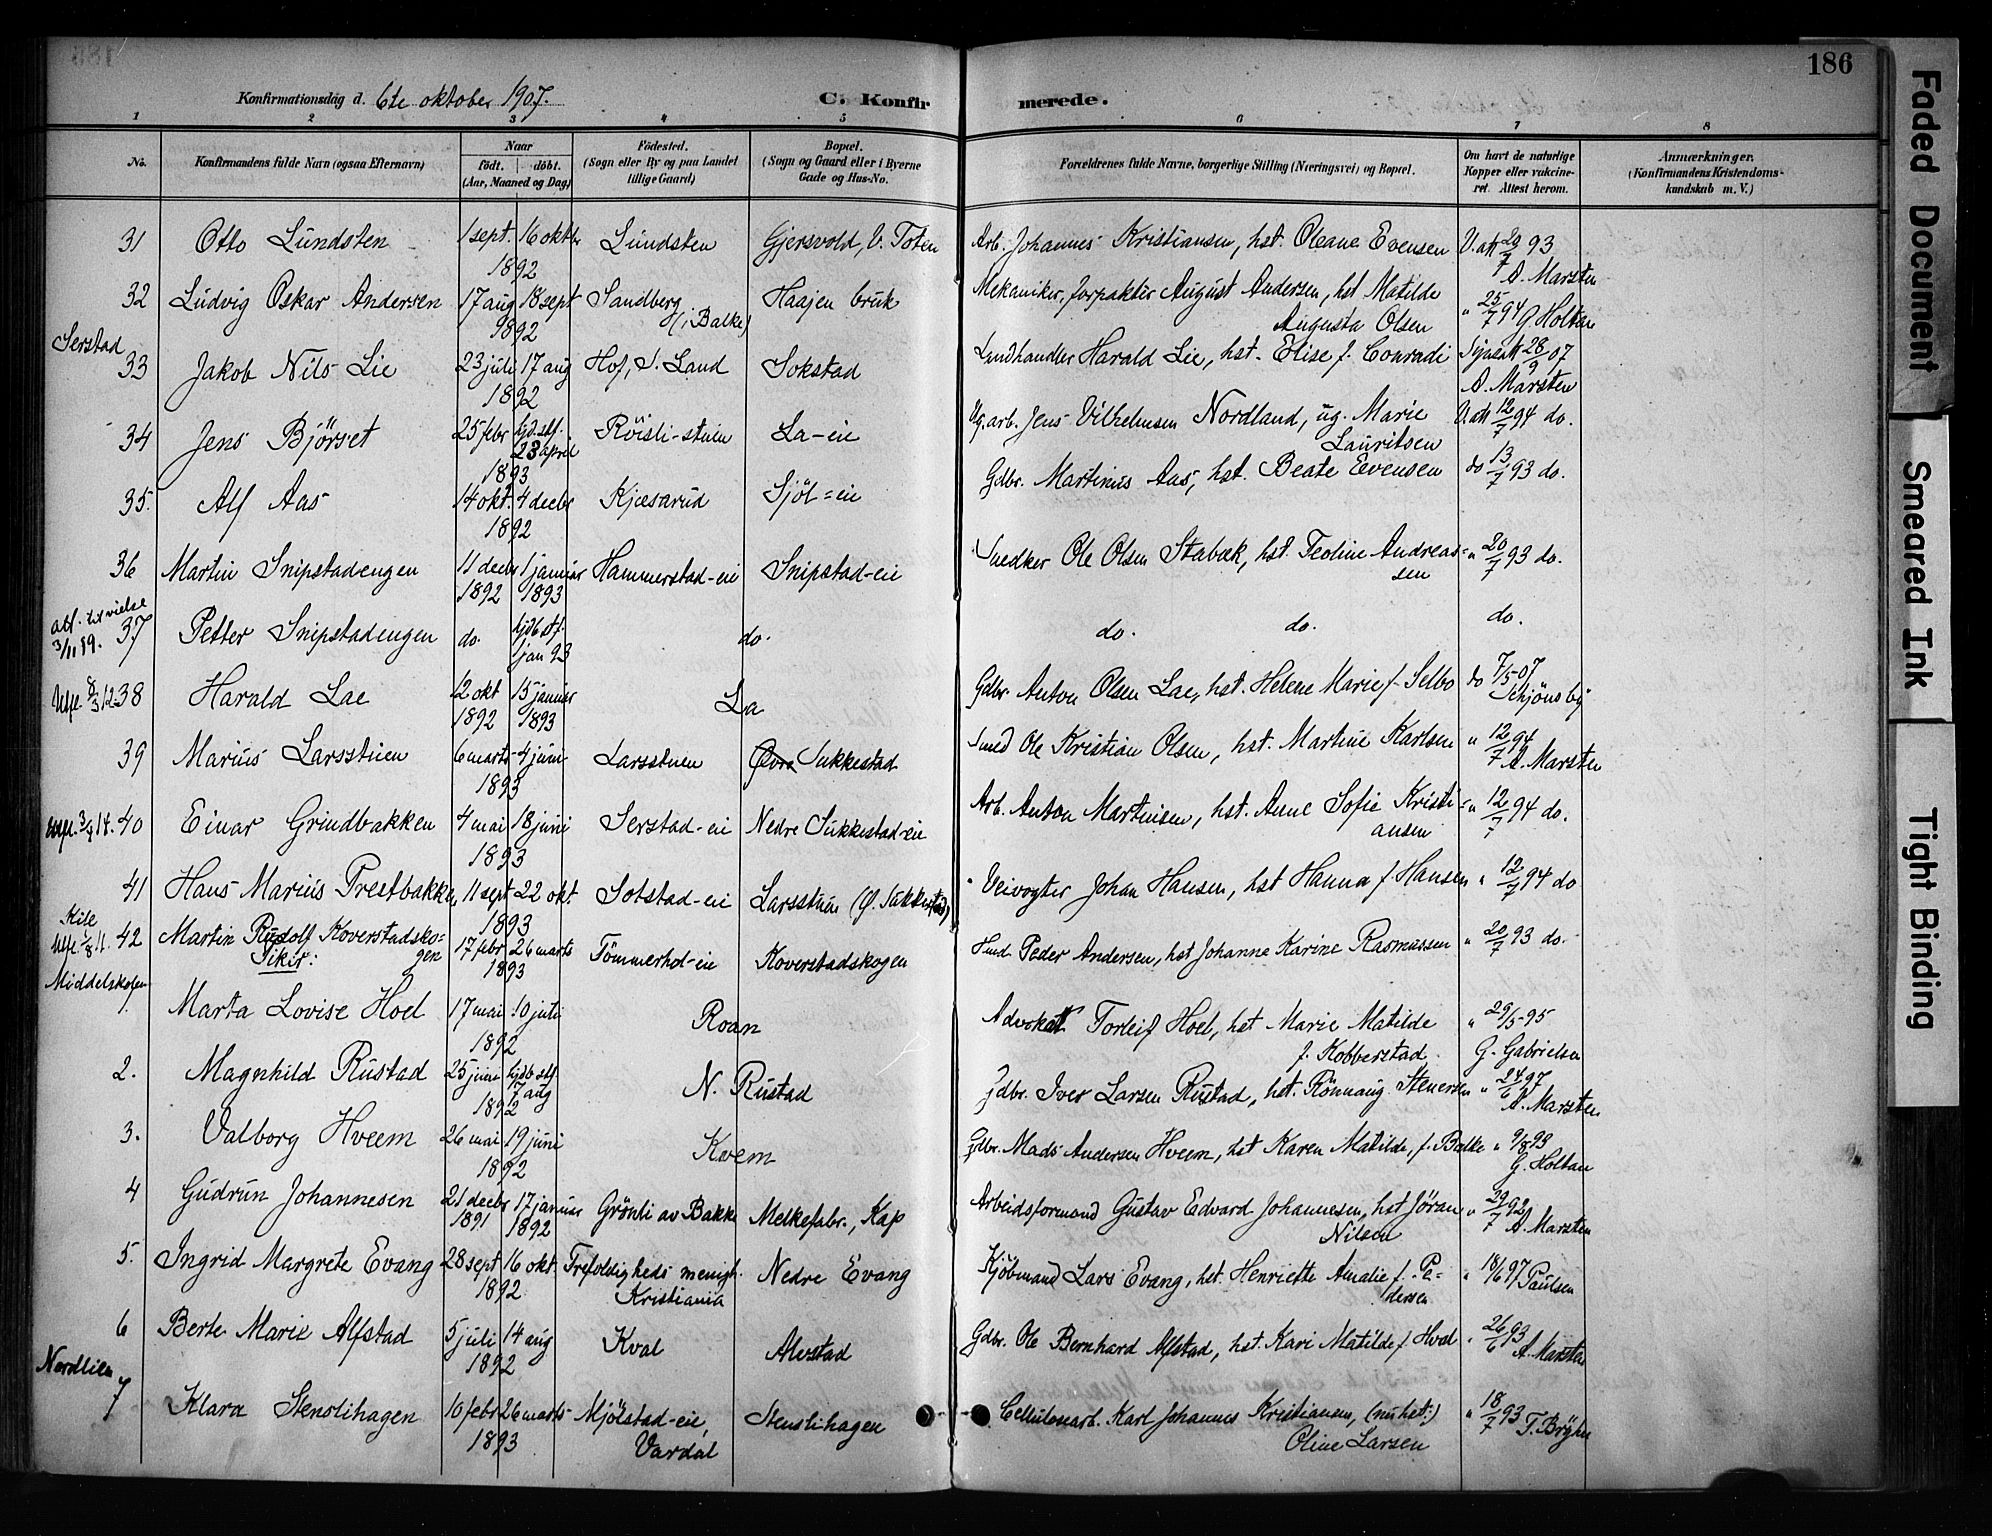 186
Konfirmationsdag d. 6te oktober 1907.
C. Konfirmerede.
1 2 3 4 5 6 7 8
No. Konfirmandens fulde Navn (ogsaa Efternavn) Naar født. døbt. (Aar, Maaned og Dag) Fødested. (Sogn eller By og paa Landet tillige Gaard) Bopæl. (Sogn og Gaard eller i Byerne Gade og Hus-No. Forældrenes fulde Navne, borgerlige Stilling (Næringsvei) og Bopæl. Om havt de naturlige Kopper eller vakcineret. Attest herom. Anmærkninger. (Konfirmandens Kristendomskundskab m. V.)
31 Otto Lundsten 1 sept. 16 oktbr 1892 Lundsten Gjersvold, V. Toten Arb. Johannes Kristiansen, hst. Oleane Evensen V. att 20/7 93 A. Marsten
32 Ludvig Oskar Andersen 17 aug 18 sept 1892 Sandberg (i Balke) Haajen bruk Mekaniker, forpakter August Andersen, hst Matilde Augusta Olsen " 25/7 94 G. Holtan
Serstad
33 Jakob Nils Lie 23 juli 17 aug 1892 Hof, S. Land Sokstad Landhandler Harald Lie, hst. Elise f. Conradi 28/9 07 A. Marsten
34 Jens Björset 25 febr hjd. stf. 23 april 1893 Röisli-stuen La-eie Ug. arb. Jens Vilhelmsen Nordland, ug. Marie Lauritsen V. att 12/7 94 do.
35. Alf Aas 14 okt. 4 decbr 1892 Kjæsarud Sjöl-eie Gdbr. Martinus Aas, hst. Beate Evensen do 13/7 93 do.
36 Martin Snipstadengen 11 decbr 1892 1 januar 1893 Hammerstad-eie Snipstad-eie Snedker Ole Olsen Stabæk, hst. Teoline Andreassen " 20/7 93 do.
att. til vielse 3/11 19.
37 Petter Snipstadengen do. hjdb stf. 1 jan 93 do. do. do. do.
Utfl. 8/3 12
38 Harald Lae 12 okt 1892 15 januar 1893 La Gdbr. Anton Olsen Lae, hst. Helene Marie f. Selbo do 7/5-07 Schjönsby
39 Marius Larsstuen 6 marts 4 juni 1893 Larsstuen Øvre Sukkestad Smed Ole Kristian Olsen, hst. Martine Karlsen " 12/7 94 A. Marsten
Utfl. 3/4 14.
40 Einar Grindbakken 4 mai 18 juni 1893 Serstad-eie Nedre Sukkestad-eie Arb. Anton Martinsen, hst. Anne Sofie Kristiansen " 12/7 94 do.
41 Hans Marius Prestbakken 11 sept 22 okt 1893 Sotstad-eie Larsstuen (Ø. Sukkestad) Veivogter Johan Hansen, hst Hanna f. Hansen " 12/7 94 do
Kile
42 Martin Rudolf Koverstadskogen 17 febr 26 marts 1893 Tömmerhol-eie Koverstadskogen Peder Andersen, hst Johanne Karine Rasmussen " 20/7 93 do.
Piker:
Middelskogen
1. Marta Lovise Hoel 17 mai 10 juli 1892 Roan Advokat Torleif Hoel, hst Marie Matilde f. Kobberstad " 29/5-95 G. Gabrielsen
2. Magnhild Rustad 25 juni hjdb stf 17 aug 1892 N. Rustad Gdbr. Iver Larsen Rustad, hst. Rönnaug Stenersen " 24/6 97 A. Marsten
3. Valborg Hveem 26 mai 19 juni 1892 Kvem Gdbr. Mads Andersen Hveem, hst Karen Matilde, f. Balke " 9/8 93 G. Holtan
4 Gudrun Johannesen 21 decbr 1891 17 januar 1892 Grönli av Bakke Melkefabr., Kap Arbeidsformand Gustav Edvard Johannesen, hst Jöran Nilsen " 29/7 92 A. Marsten
5. Ingrid Margrete Evang 28 sept 16 okt. 1892 Trefoldigheds menigh. Kristiania Nedre Evang Kjöbmand Lars Evang, hst. Henriette Amalie f. Pedersen " 18/6 97 Paulsen
6 Berte Marie Alfstad 5 juli 14 aug 1892 Kval Alvstad Gdbr. Ole Bernhard Alfstad, hst. Kari Matilde f. Hval " 26/6 93 A. Marsten
Nordlien
7 Klara Stenslihagen 10 febr 26 marts 1893 Mjölstad-eie, Vardal Stenslihagen Cellulosearb. Karl Johannes Kristiansen, (nu hst:) Oline Larsen " 18/7 93
Faded Document
Smeared Ink
Tight Binding